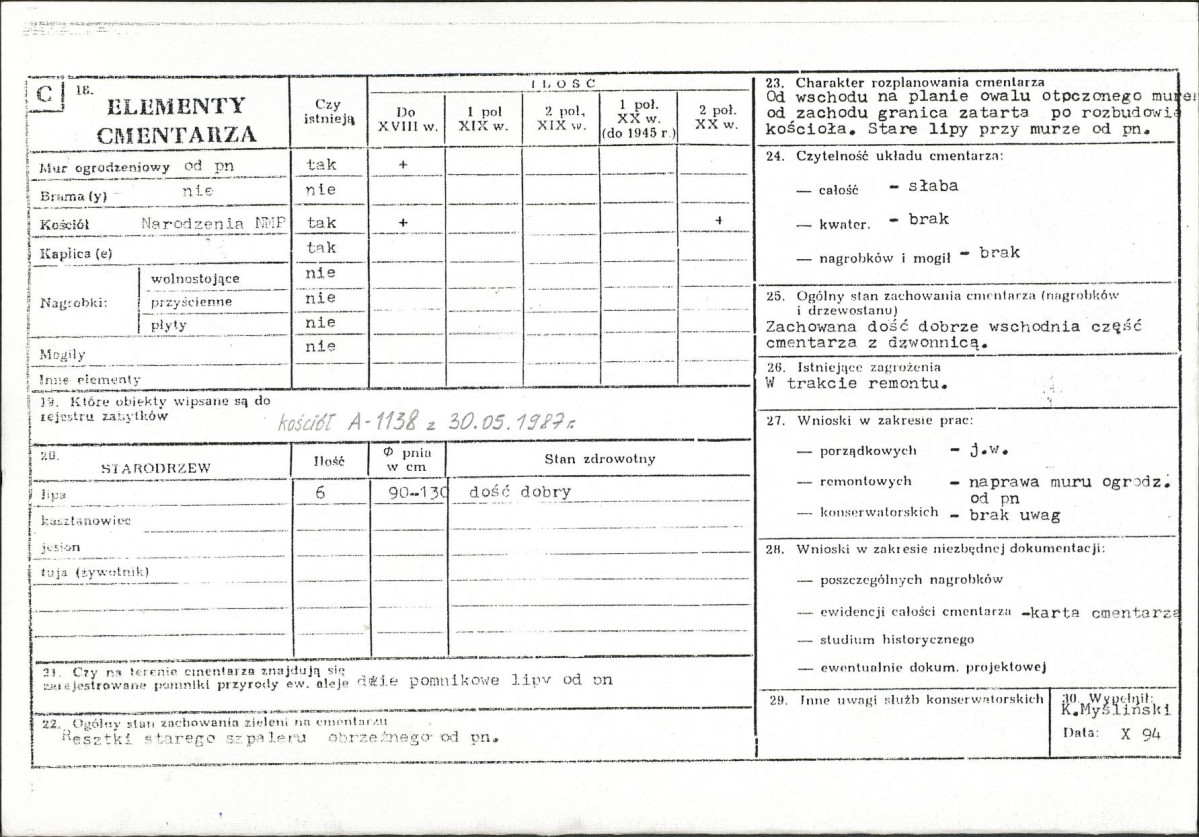 C
18.
ELEMENTY
CMENTARZA
Czy
istnieją
ILOŚĆ
Do
XVIII w.
1 poł
XIX w.
2 poł.
XIX w.
1 poł.
XX w.
(do 1945 r.)
2 poł.
XX w.
Mur ogrodzeniowy od pn tak +
Brama (y) - nie nie
Kościół Narodzenia NMP tak + +
Kaplica (e) tak
Nagrobki:
wolnostojące nie
przyścienne nie
płyty nie
Mogiły nie
Inne elementy
19. Które obiekty wpisane są do
rejestru zabytków
kościół A-1138 z 30.05.1987 r.
20.
STARODRZEW
Ilość
Φ pnia
w cm
Stan zdrowotny
lipa 6 90-130 dość dobry
kasztanowiec
jesion
tuja (żywotnik)
21. Czy na terenie cmentarza znajdują się
zarejestrowane pomniki przyrody ew. aleje dwie pomnikowe lipy od pn
22. Ogólny stan zachowania zieleni na cmentarzu
Resztki starego szpaleru obrzeżnego od pn.
23. Charakter rozplanowania cmentarza
Od wschodu na planie owalu otpczonego mure
od zachodu granica zatarta po rozbudowie
kościoła. Stare lipy przy murze od pn.
24. Czytelność układu cmentarza:
— całość - słaba
— kwater. - brak
— nagrobków i mogił - brak
25. Ogólny stan zachowania cmentarza (nagrobków
i drzewostanu)
Zachowana dość dobrze wschodnia część
cmentarza z dzwonnicą.
26. Istniejące zagrożenia
W trakcie remontu.
27. Wnioski w zakresie prac:
— porządkowych - j.w.
— remontowych - naprawa muru ogrodz.
od pn
— konserwatorskich - brak uwag
28. Wnioski w zakresie niezbędnej dokumentacji:
— poszczególnych nagrobków
— ewidencji całości cmentarza -karta cmentarza
— studium historycznego
— ewentualnie dokum. projektowej
29. Inne uwagi służb konserwatorskich
30. Wypełnił:
K.Myśliński
Data: X 94